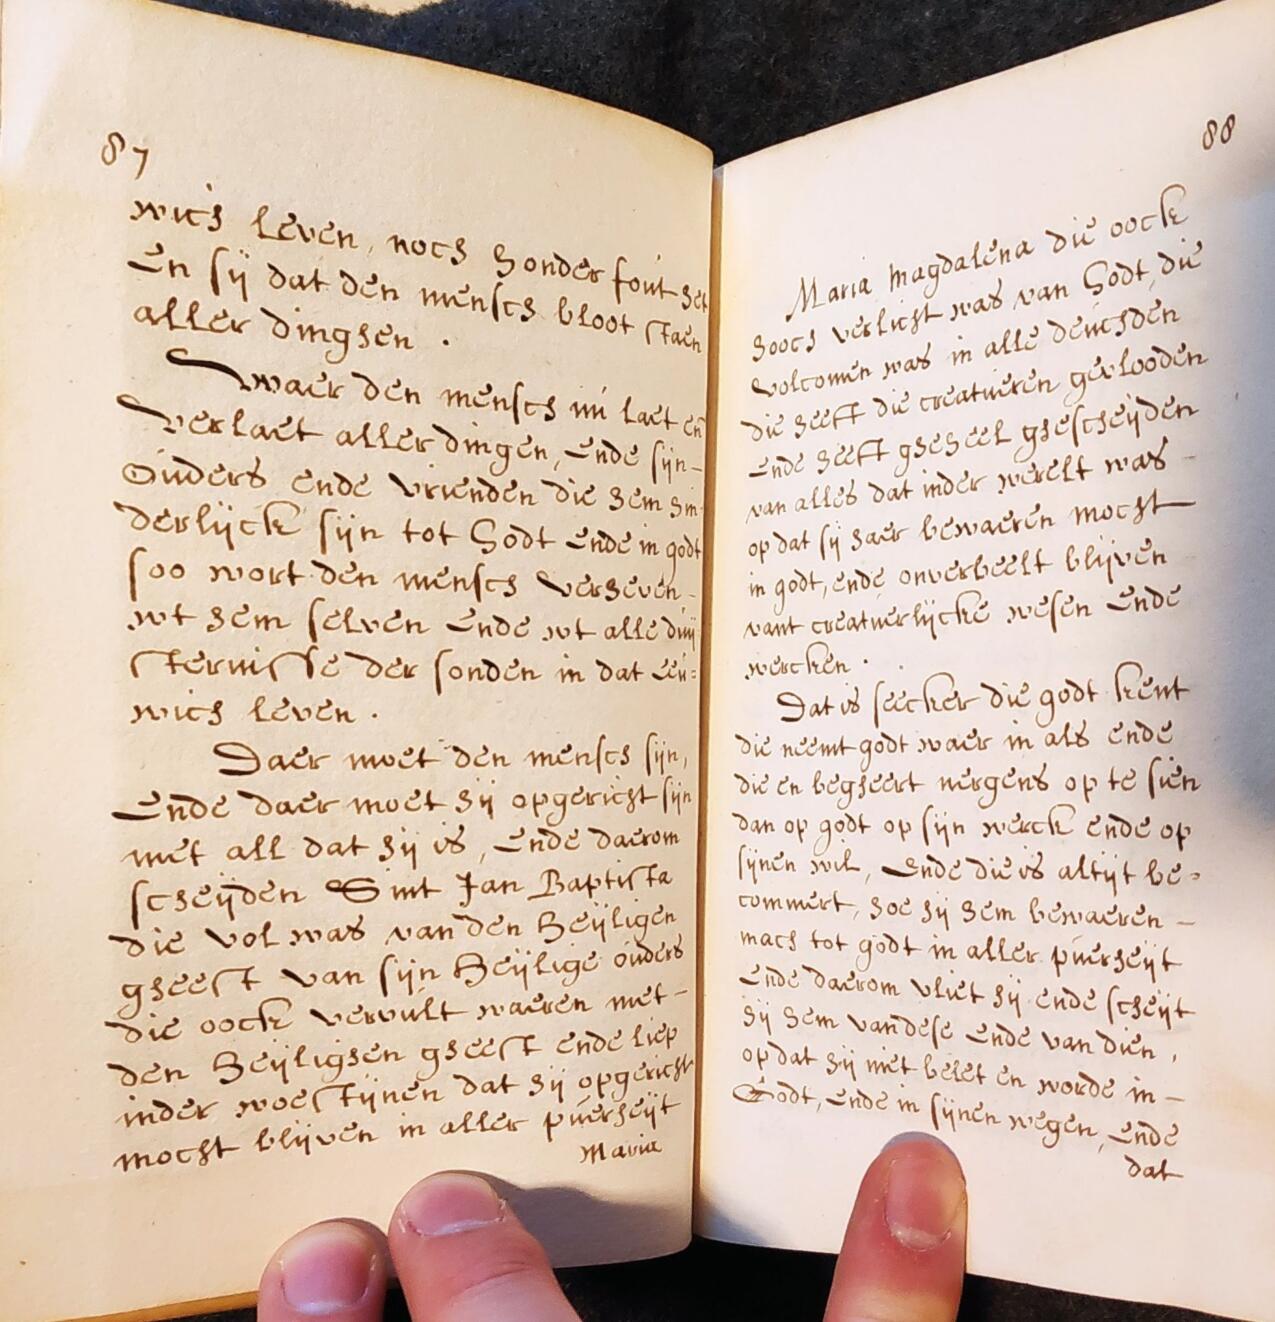 87
wich leven, noch honder fout het
En sij dat den mensch bloot staen
aller dinghen.
Waer den mensch nu laet en
Verlaet aller dingen, Ende sijn
Ouders ende vrienden die hem hin
derlijck sijn tot Godt Ende in godt
soo wort den mensch verheven
wt hem selven Ende wt alle duij
sternisse der sonden in dat Eeu=
wich leven.
Daer moet den mensch sijn,
Ende daer moet hij opgericht sijn
met all dat hij is, Ende daerom
scheijden Sint Jan Baptista
die vol was van den Heijligen
gheest van sijn Heijlige ouders
die oock vervult waeren met
den Heijlighen gheest ende liep
inder woestijnen dat hij opgericht
mocht blijven in aller puerheijt
Maria
88
Maria Magdalena die oock
hooch verlicht was van Godt, die
Volcomen was in alle deuchden
die heeft die creatueren gevlooden
Ende heeft gheheel ghescheijden
van alles dat inder werelt was
op dat sij haer bewaeren mocht
in godt, ende onverbeelt blijven
vant creatuerlijcke wesen Ende
wercken.
Dat is seecker die godt kent
die neemt godt waer in als ende
die en begheert nergens op te sien
dan op godt op sijn werck ende op
sijnen wil, Ende die is altijt be=
commert, hoe hij hem bewaeren
mach tot godt in aller puerheijt
Ende daerom vliet hij ende scheijt
hij hem van dese Ende van dien,
op dat hij niet belet en worde in
Godt, Ende in sijnen wegen, Ende
dat